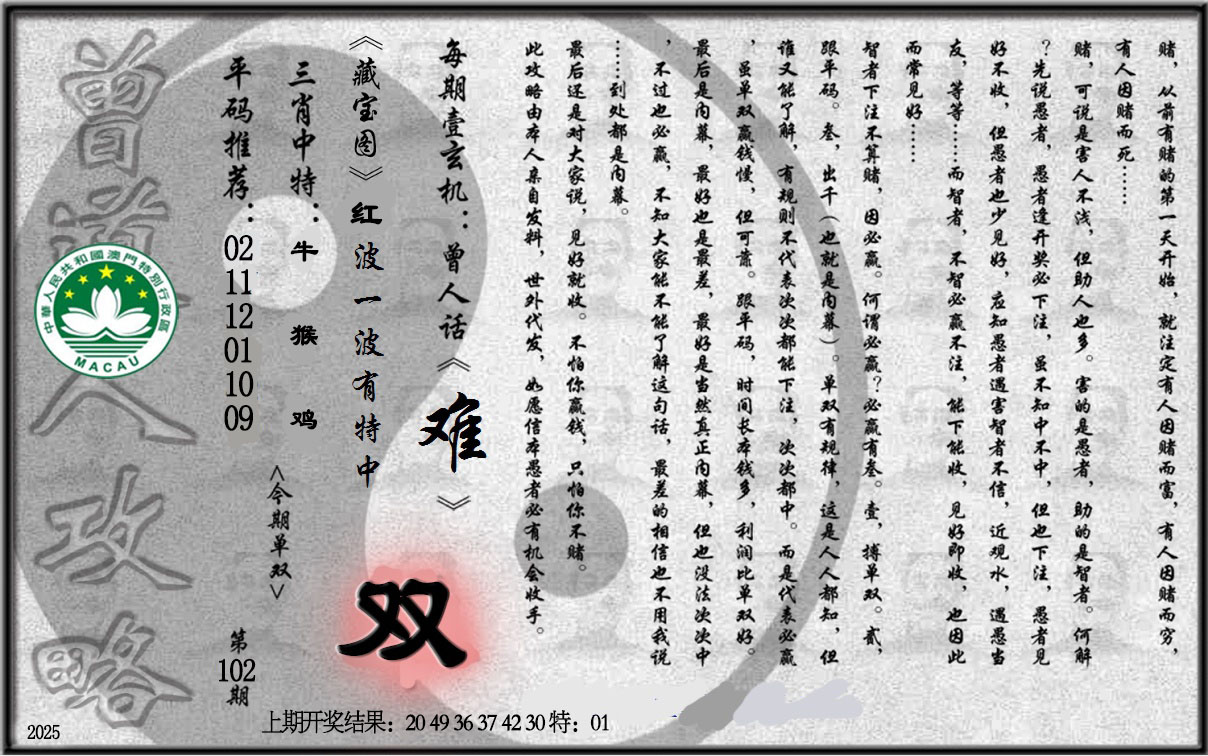 赌，从前有赌的第一天开始，就注定有人因赌而富，有人因赌而穷，
有人因赌而死……
赌，可说是害人不浅，但助人也多。害的是愚者，助的是智者。何解
？先说愚者，愚者逢开奖必下注，虽不知中不中，但也下注，愚者见
好不收，但愚者也少见好，应知愚者遇害智者不信，近观水，遇愚当
友，等等……而智者，不智必赢不注，能下能收，见好即收，也因此
而常见好……
智者下注不算赌，因必赢。何谓必赢？必赢有叁。壹，搏单双。贰，
跟平码。叁，出千（也就是内幕）。单双有规律，这是人人都知，但
谁又能了解，有规则不代表次次都能下注，次次都中。而是代表必赢
，虽单双赢钱慢，但可靠。跟平码，时间长本钱多，利润比单双好。
最后是内幕，最好也是最差，最好是当然真正内幕，但也没法次次中
，不过也必赢，不知大家能不能了解这句话，最差的相信也不用我说
……到处都是内幕。
最后还是对大家说，见好就收。不怕你赢钱，只怕你不赌。
此攻略由本人亲自发料，世外代发，如愿信本愚者必有机会收手。
每期壹玄机：曾人话《难》
《藏宝图》红波一波有特中
双
三肖中特：牛猴鸡
<今期单双>
平码推荐：02 11 12 01 10 09
第102期
曾道人攻略
中華人民共和國澳門特別行政區
MACAU
上期开奖结果：20 49 36 37 42 30 特：01
2025